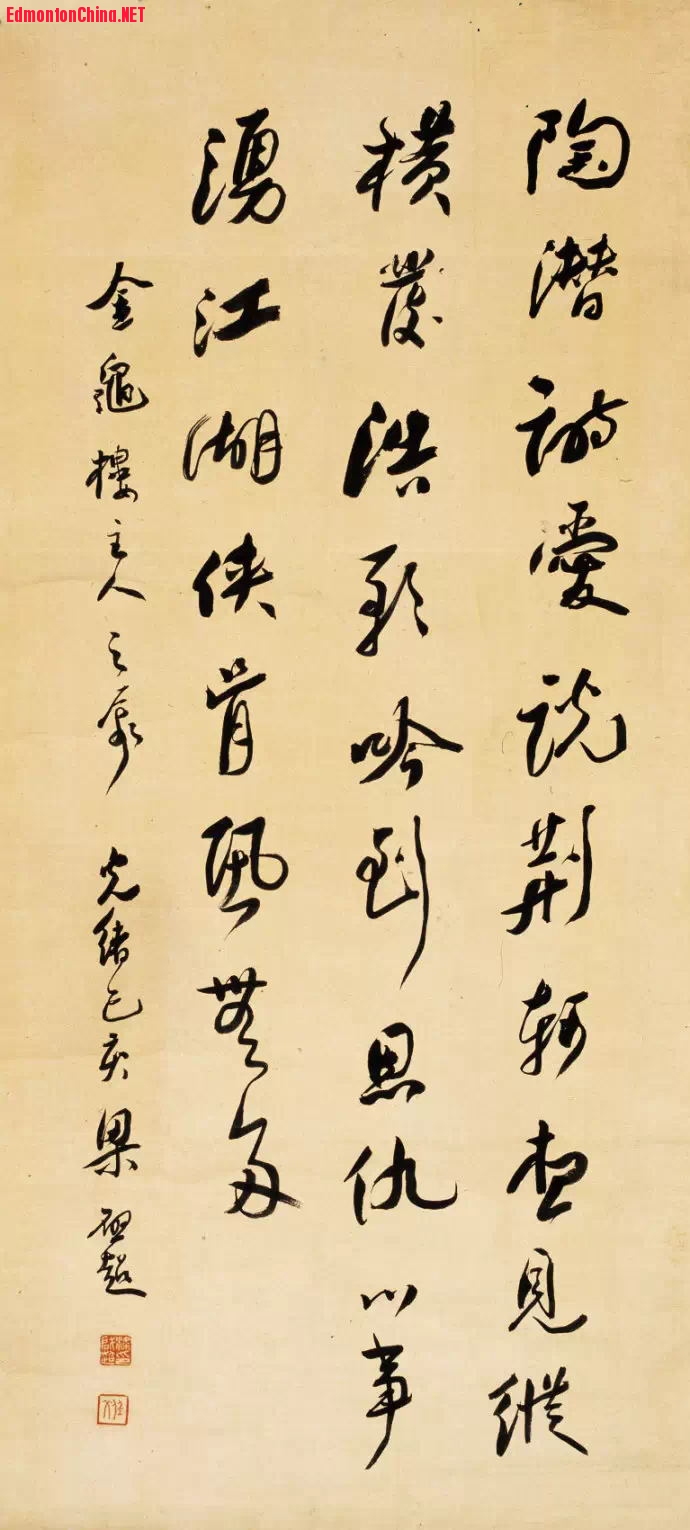 EdmontonChina.NET
陶潛詩愛說荊軻想見縱
橫發浩歌吟到恩仇心事
湧江湖俠骨恐無多
金龜樓主人之 光緒己亥 梁啟超